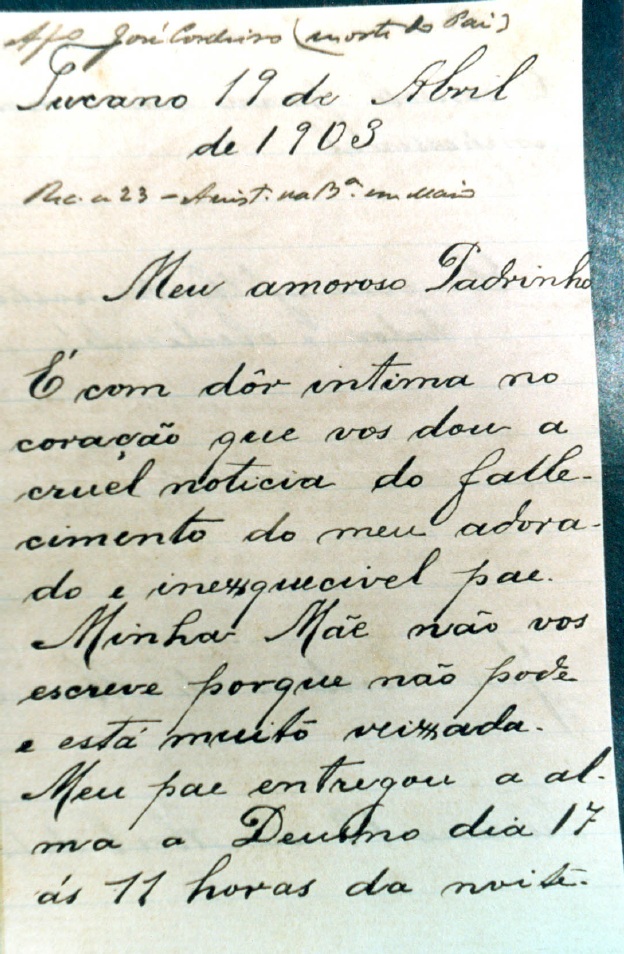 José Cordeiro (morte do Pai)
Tucano 19 de Abril
de 1903
Rec. a 23 – na Bª. em Maio
Meu amoroso Padrinho
É com dôr intima no
coração que vos dou a
cruel noticia do falle-
cimento do meu adora-
do e inexquecivel pae.
Minha Mãe não vos
escreve porque não pode
e está muito vexada.
Meu pae entregou a al-
ma a Deus no dia 17
ás 11 horas da noite.